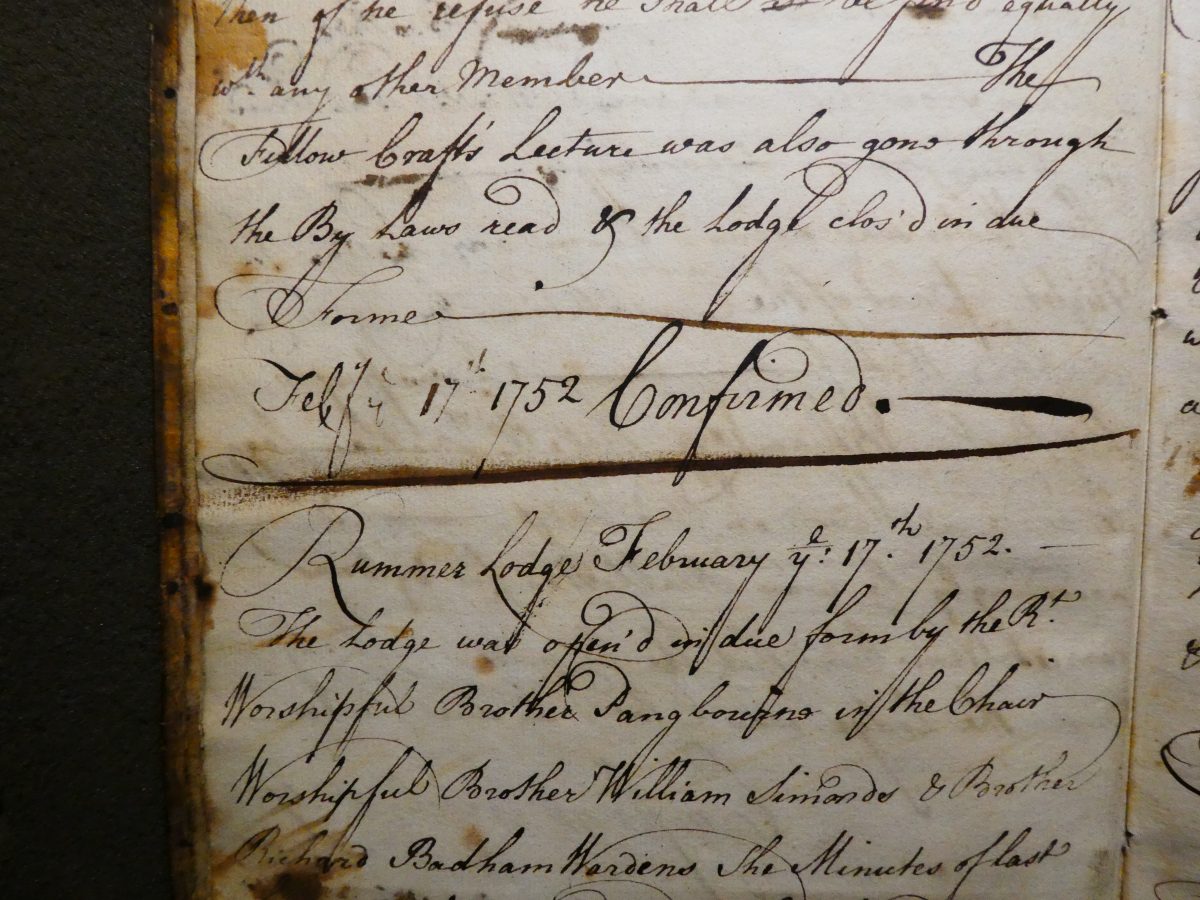 then if he refuse he shall be fin'd equally
wth any other Member The
Fellow Craft's Lecture was also gone through
the By Laws read & the Lodge clos'd in due
Forme
Febry ye 17th 1752 Confirmed.
Rummer Lodge February ye: 17th 1752.
The Lodge was open'd in due form by the Rt.
Worshipful Brother Pangbourne in the Chair
Worshipful Brother William Simonds & Brother
Richard Badham Wardens The Minutes of last